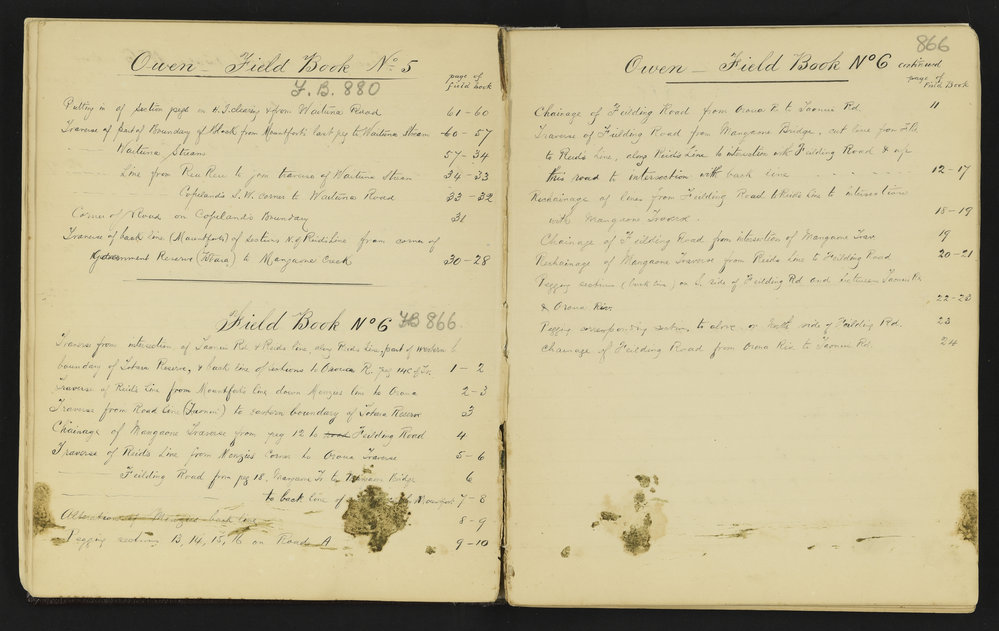 Owen - Field Book No. 5
F.B. 880
page of
field book
Putting in of section pegs on H.S. clearing & from Waituna Road 61-60
Traverse of part of Boundary of Block from Mountfort's last peg to Waituna Stream 60-57
Waituna Stream 57-34
Line from Reu Reu to join traverse of Waituna Stream 34-33
Copeland's S.W. corner to Waituna Road 33-32
Corner of Road on Copeland's Boundary 31
Traverse of back line (Mountfort's) of sections N. of Reids Line from corner of
Government Reserve (Totara) to Mangaone Creek 30-28
Field Book No 6 FB 866
Traverse from intersection of Taonui Rd. & Reids line, along Reids Line, part of western b
boundary of Totara Reserve, & back line of sections to Oroua R. peg 1-2
Traverse of Reid's Line from Mountfort's line down Menzies line to Oroua 2-3
Traverse from Road Line (Taonui) to eastern boundary of Totara Reserve 3
Chainage of Mangaone Traverse from peg 12 to Feilding Road 4
Traverse of Reids Line from Menzies Corner to Oroua Traverse 5-6
Feilding Road from peg 18, Mangaone Tr. to Bridge 6
to back line of 7-8
Alteration of Menzies back line 8-9
Pegging sections B, 14, 15, 16 on Road A 9-10
866
Owen - Field Book No 6 continued
page of
Field Book
Chainage of Feilding Road from Oroua R. to Taonui Rd. 11
Traverse of Feilding Road from Mangaone Bridge, cut line from
to Reids Line, along Reids Line to intersection with Feilding Road & up
this road to intersection with back line 12-17
Rechainage of lines from Feilding Road to Reids Line to intersection
with Mangaone Traverse. 18-19
Chainage of Feilding Road from intersection of Mangaone Trav. 19
Rechainage of Mangaone Traverse from Reids Line to Feilding Road 20-21
Pegging sections (back line) on S. side of Feilding Rd. and between Taonui Rd.
& Oroua Riv. 22-23
Pegging corresponding sections to above on North side of Feilding Rd. 23
Chainage of Feilding Road from Oroua Riv. to Taonui Rd. 24